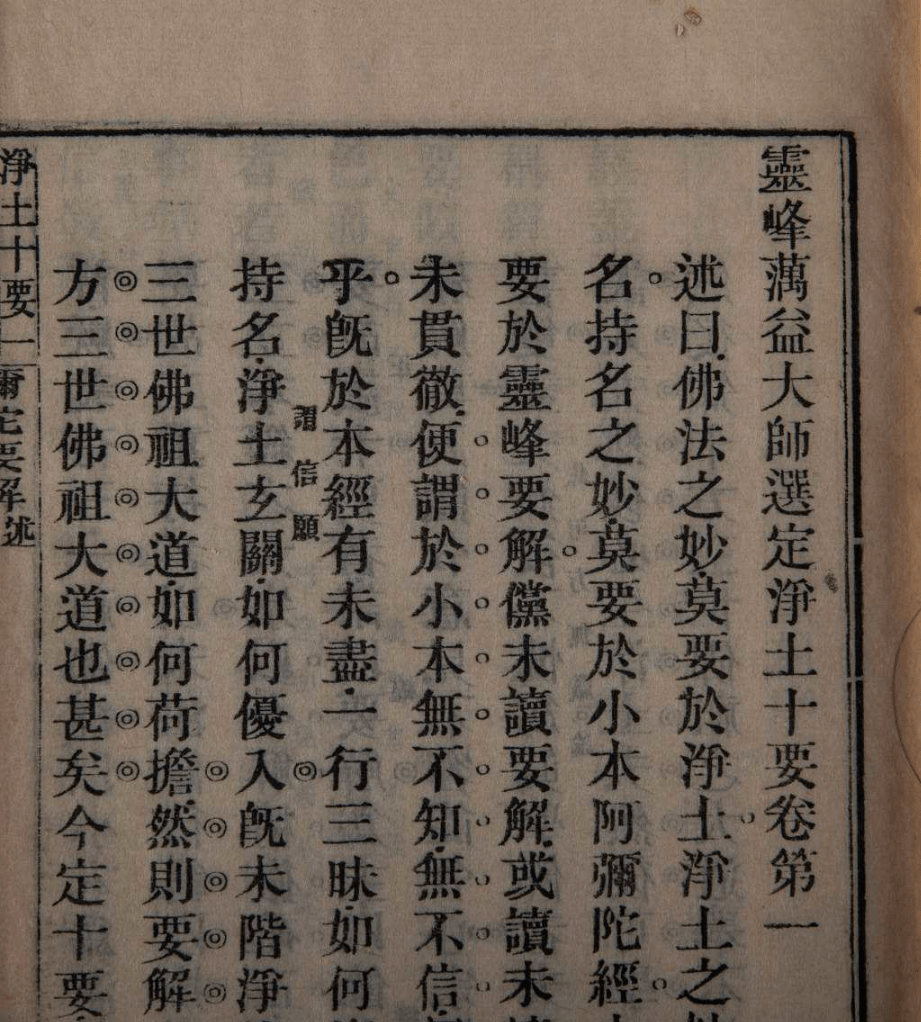 靈峰蕅益大師選定淨土十要卷第一
述曰佛法之妙莫要於淨土淨土之
名持名之妙莫要於小本阿彌陀經
要於靈峰要解儻未讀要解或讀未
未貫徹便謂於小本無不知無不信
乎旣於本經有未盡一行三昧如何
謂信願
持名淨土玄關如何優入旣未階淨
三世佛祖大道如何荷擔然則要解
方三世佛祖大道也甚矣今定十要
淨土十要一 彌陀要解述